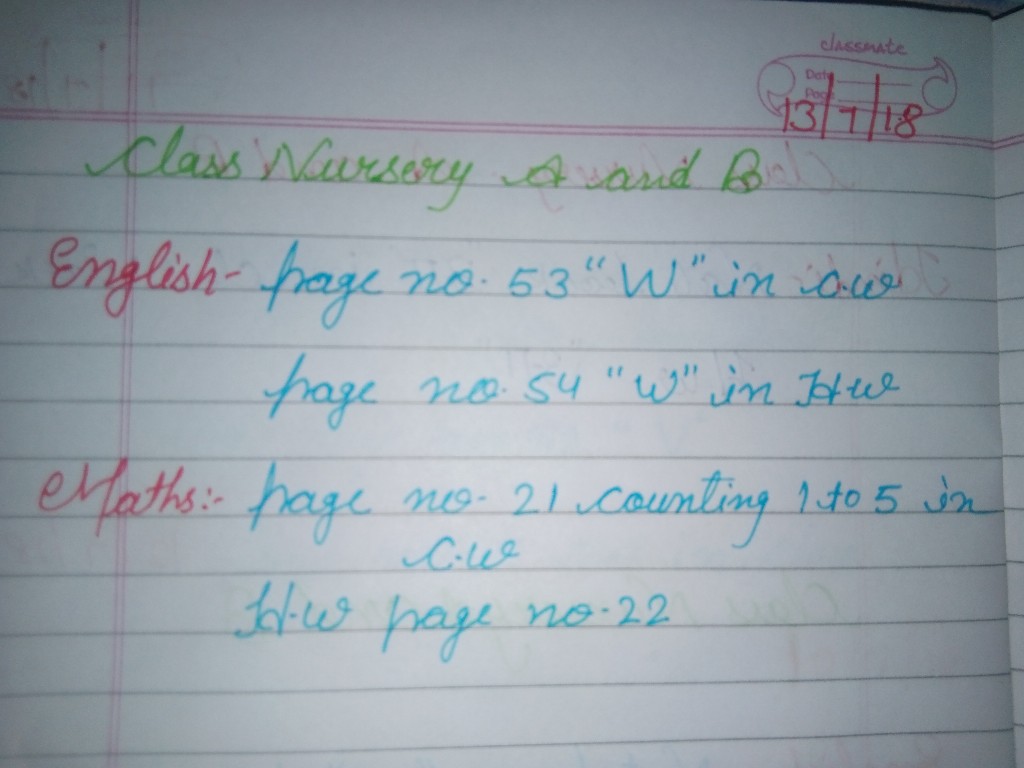 classmate
Date
Page
13/7/18
Class Nursery A and B
English- page no. 53 "W" in c.w
page no. 54 "W" in H.w
Maths:- page no. 21 counting 1 to 5 in
C.w
H.w page no. 22